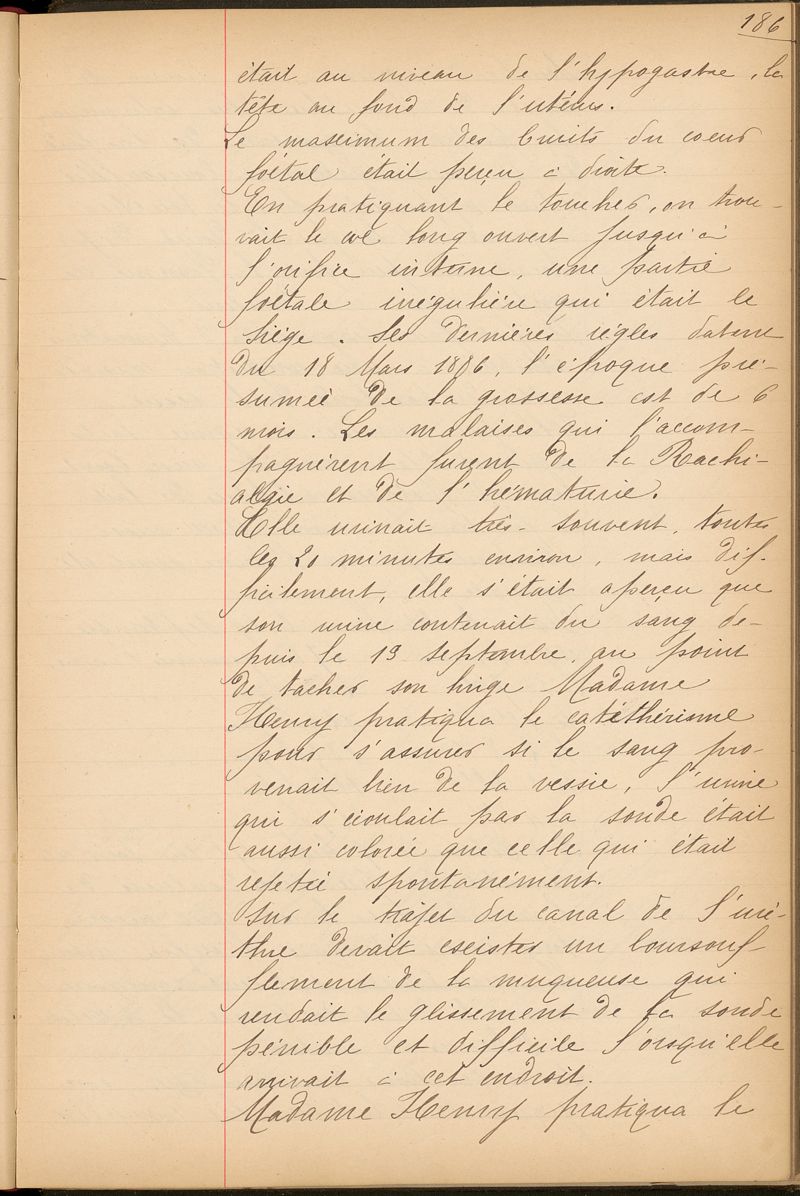 186
était au niveau de l'hypogastre, la
tête au fond de l'utérus.
Le maximum des bruits du coeur
foétal était perçu à droite.
En pratiquant le toucher, on trou-
vait le col long ouvert jusqu'à
l'orifice interne, une partie
foétale irrégulière qui était le
siège. Ses dernières règles datent
du 18 Mars 1886, l'époque pré-
sumée de la grossesse est de 6
mois. Les malaises qui l'accom-
pagnèrent furent de la Rachi-
algie et de l'hématurie.
Elle urinait très-souvent, toutes
les 20 minutes environ, mais dif-
ficilement, elle s'était aperçu que
son urine contenait du sang de-
puis le 13 septembre, au point
de tacher son linge Madame
Henry pratiqua le catéthérisme
pour s'assurer si le sang pro-
venait bien de la vessie, l'urine
qui s'écoulait par la sonde était
aussi colorée que celle qui était
rejetée spontanément.
Sur le trajet du canal de l'uré-
thre devait exister un boursouf-
flement de la muqueuse qui
rendait le glissement de la sonde
pénible et difficile lorsqu'elle
arrivait à cet endroit.
Madame Henry pratiqua le